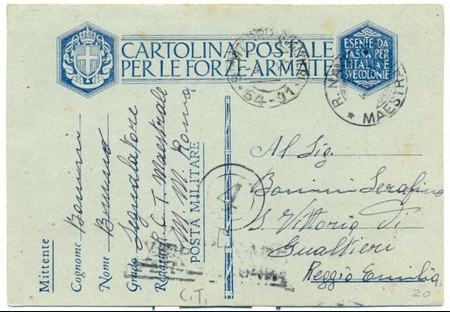 CARTOLINA POSTALE
PER LE FORZE ARMATE
ESENTE DA
TASSA PER
L'ITALIA E
SUE COLONIE
54-91
R. NAVE
MAESTRALE
Mittente
Cognome Bonini
Nome
Grado Segnalatore
C. T. Maestrale
M. M. Roma
POSTA MILITARE
4
Al Sig.
Bonini Serafino
S. Vittoria di
Gualtieri
Reggio Emilia
C.T.
20